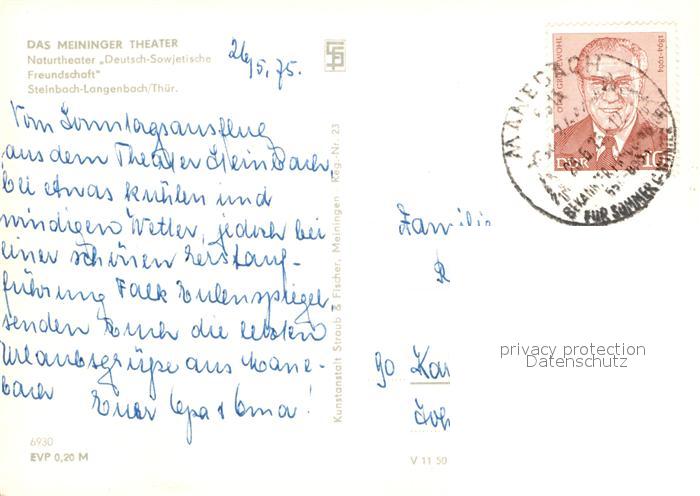 DAS MEININGER THEATER
Naturtheater „Deutsch-Sowjetische
Freundschaft"
Steinbach-Langenbach/Thür.
26/5. 75.
Vom Sonntagsausflug
aus dem Theater Steinbach,
bei etwas kühlen und
windigen Wetter, jedoch bei
einer schönen Erstauf-
führung Falk Eulenspiegel,
senden Euch die letzten
Urlaubsgrüße aus Mane-
bach Euer Opa & Oma!
6930
EVP 0,20 M
Kunstanstalt Straub & Fischer, Meiningen Reg.-Nr. 23
V 11 50
OTTO GROTEWOHL
1894-1964
DDR 10
MANEBACH
FÜR SOMMER
Familie
R
90 Kar
Joh
privacy protection
Datenschutz